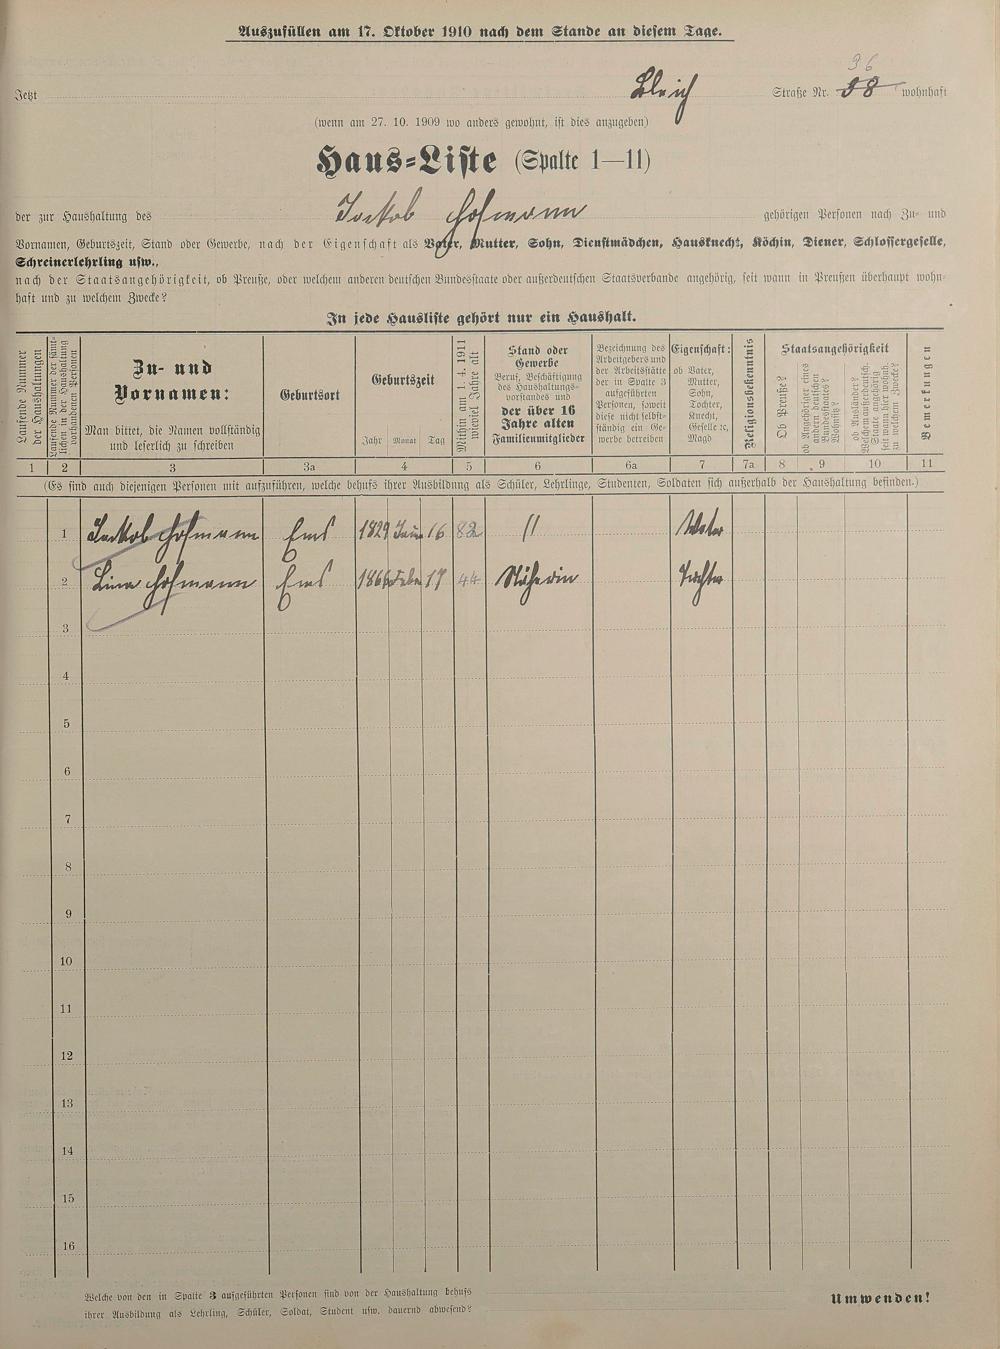 Auszufüllen am 17. Oktober 1910 nach dem Stande an diesem Tage.
36
Jetzt Bleich Straße Nr. 38 wohnhaft
(wenn am 27. 10. 1909 wo anders gewohnt, ist dies anzugeben)
Haus-Liste (Spalte 1—11)
der zur Haushaltung des Jackob Hofmann gehörigen Personen nach Zu- und
Vornamen, Geburtszeit, Stand oder Gewerbe, nach der Eigenschaft als Vater, Mutter, Sohn, Dienstmädchen, Hausknecht, Köchin, Diener, Schlossergeselle,
Schreinerlehrling usw.,
nach der Staatsangehörigkeit, ob Preuße, oder welchem anderen deutschen Bundesstaate oder außerdeutschen Staatsverbande angehörig, seit wann in Preußen überhaupt wohn-
haft und zu welchem Zwecke?
In jede Hausliste gehört nur ein Haushalt.
Laufende Nummer
der Haushaltungen
Laufende Nummer der sämt-
lichen in der Haushaltung
vorhandenen Personen
Zu- und
Vornamen:
Man bittet, die Namen vollständig
und leserlich zu schreiben
Geburtsort
Geburtszeit
Jahr Monat Tag
Mithin am 1. 4. 1911
wieviel Jahre alt
Stand oder
Gewerbe
Beruf, Beschäftigung
des Haushaltungs-
vorstandes und
der über 16
Jahre alten
Familienmitglieder
Bezeichnung des
Arbeitgebers und
der Arbeitsstätte
der in Spalte 3
aufgeführten
Personen, soweit
diese nicht selbst-
ständig ein Ge-
werbe betreiben
Eigenschaft:
ob Vater,
Mutter,
Sohn,
Tochter,
Knecht,
Geselle ꝛc,
Magd
Religionsbekenntnis
Staatsangehörigkeit
Ob Preuße?
ob Angehöriger eines
andern deutschen
Bundesstaates?
Wohnsitz?
ob Ausländer?
Welchem außerdeutsch.
Staate angehörig
seit wann hier wohnh.
zu welchem Zwecke?
Bemerkungen
1 2 3 3a 4 5 6 6a 7 7a 8 9 10 11
(Es sind auch diejenigen Personen mit aufzuführen, welche behufs ihrer Ausbildung als Schüler, Lehrlinge, Studenten, Soldaten sich außerhalb der Haushaltung befinden.)
1 Jackob Hofmann Ems 1829 16 82 // Vater
2 Lina Hofmann Ems 1866 Febr 17 44 Näherin Tochter
3
4
5
6
7
8
9
10
11
12
13
14
15
16
Welche von den in Spalte 3 aufgeführten Personen sind von der Haushaltung behufs
ihrer Ausbildung als Lehrling, Schüler, Soldat, Student usw. dauernd abwesend?
Umwenden!